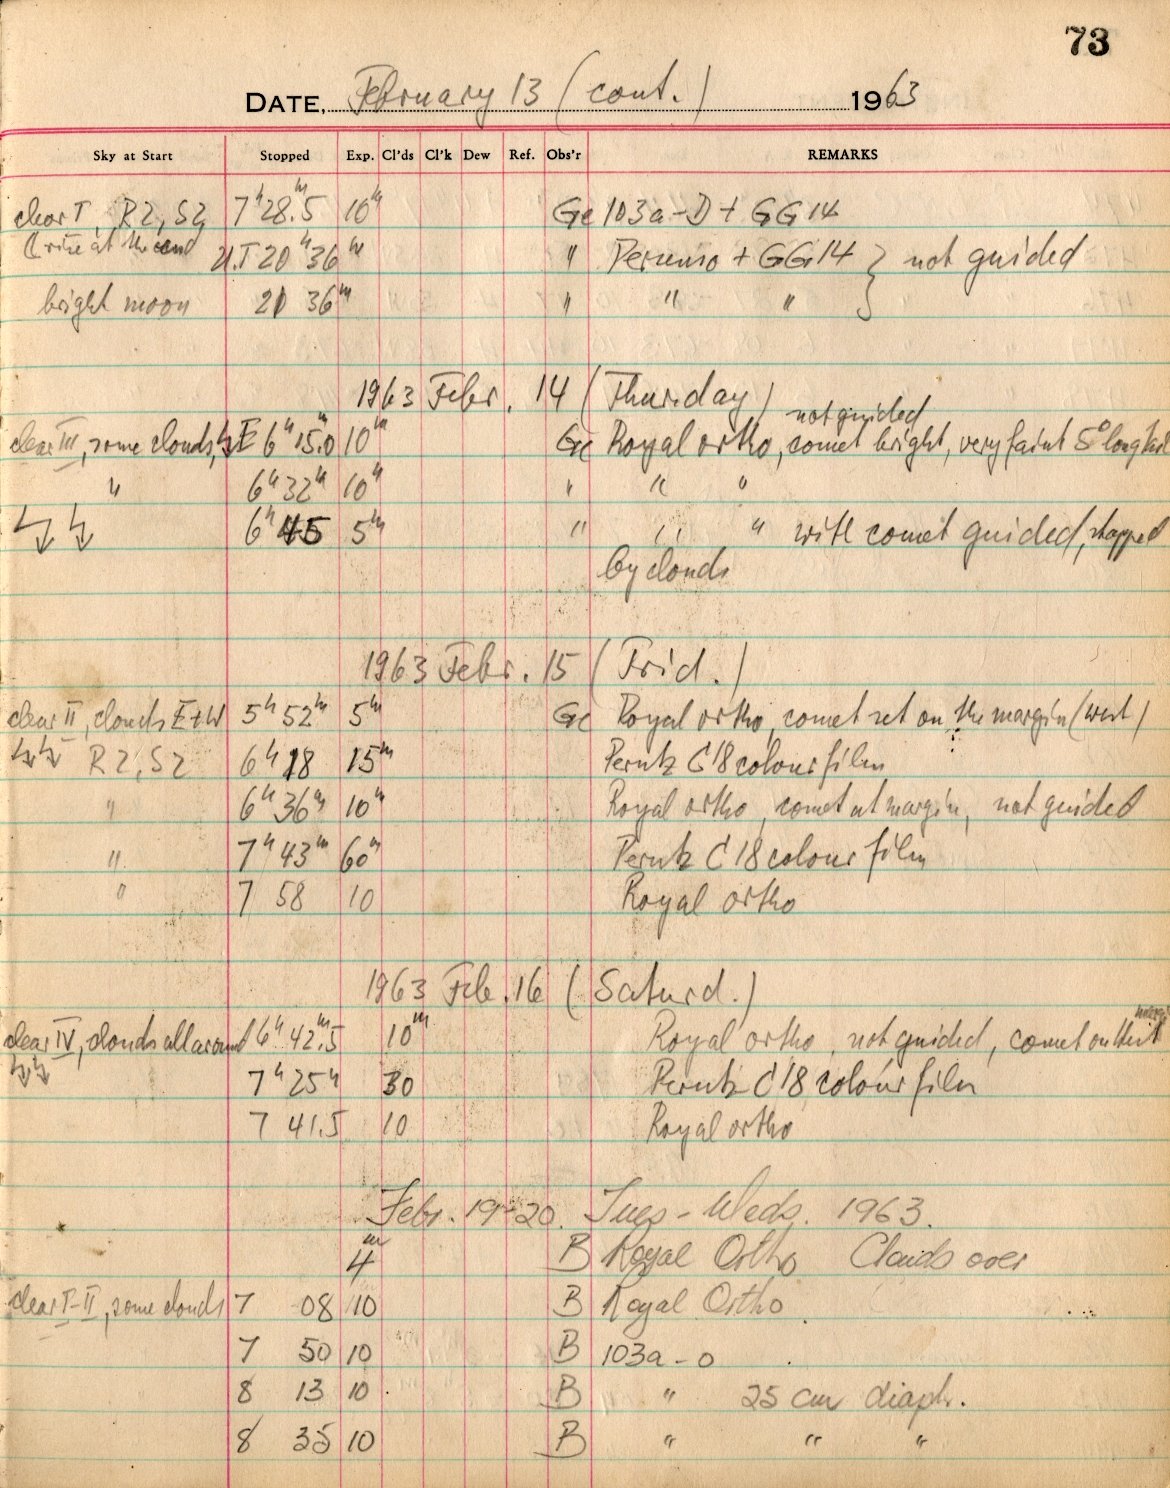 73
DATE, February 13 (cont.) 1963
Sky at Start Stopped Exp. Cl'ds Cl'k Dew Ref. Obs'r REMARKS
clear I, R2, S2 7h 28.m5 10m Ge 103a-D + GG14
rise at the end U.T 20h 36m " + GG14 } not guided
bright moon 21 36m " " "
1963 Febr. 14 (Thursday)
not guided
clear III, some clouds, E 6h 15m.0 10m Ge Royal ortho, comet bright, very faint 5° long tail
" 6h 32m 10m " " "
6h 45 5m " " " with comet guided, stopped
by clouds
1963 Febr. 15 (Frid.)
clear II, clouds E+W 5h 52m 5m Ge Royal ortho, comet set on the margin (west)
R2, S2 6h 18 15m Perutz C18 colour film
" 6h 36m 10m Royal ortho, comet at margin, not guided
" 7h 43m 60m Perutz C18 colour film
" 7 58 10 Royal ortho
1963 Feb. 16 (Saturd.)
clear IV, clouds all around 6h 42m.5 10m Royal ortho, not guided, comet on the
7h 25m 30 Perutz C18 colour film
7 41.5 10 Royal ortho
Febr. 19-20. Tues - Weds. 1963.
4m B Royal Ortho Clouds over
clear I-II, some clouds 7 08 10 B Royal Ortho
7 50 10 B 103a-o
8 13 10 B " 25 cm diaph.
8 35 10 B " " "